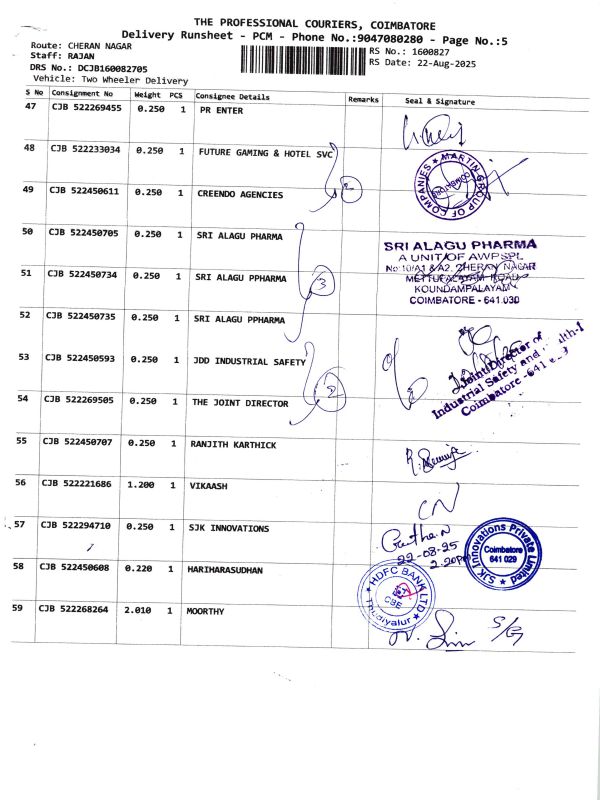 THE PROFESSIONAL COURIERS, COIMBATORE
Delivery Runsheet - PCM - Phone No.:9047080280 - Page No.:5
Route: CHERAN NAGAR
RS No.: 1600827
Staff: RAJAN
RS Date: 22-Aug-2025
DRS No.: DCJB160082705
Vehicle: Two Wheeler Delivery
S No Consignment No Weight PCS Consignee Details Remarks Seal & Signature
47 CJB 522269455 0.250 1 PR ENTER
48 CJB 522233034 0.250 1 FUTURE GAMING & HOTEL SVC
MARTIN GROUP OF COMPANIES
49 CJB 522450611 0.250 1 CREENDO AGENCIES
2
50 CJB 522450705 0.250 1 SRI ALAGU PHARMA
SRI ALAGU PHARMA
A UNIT OF AWPSPL
No:10/A1 & A2, CHERAN NAGAR
METTUPALAYAM ROAD
KOUNDAMPALAYAM
COIMBATORE - 641 030
51 CJB 522450734 0.250 1 SRI ALAGU PPHARMA
3
52 CJB 522450735 0.250 1 SRI ALAGU PPHARMA
53 CJB 522450593 0.250 1 JDD INDUSTRIAL SAFETY
Joint Director of
Industrial Safety and Health-1
Coimbatore -641
54 CJB 522269505 0.250 1 THE JOINT DIRECTOR
2
55 CJB 522450707 0.250 1 RANJITH KARTHICK
56 CJB 522221686 1.200 1 VIKAASH
57 CJB 522294710 0.250 1 SJK INNOVATIONS
22-08-25
2.20pm
SJK Innovations Private Limited
Coimbatore
641 029
58 CJB 522450608 0.220 1 HARIHARASUDHAN
HDFC BANK LTD
CBE
Thudiyalur
59 CJB 522268264 2.010 1 MOORTHY